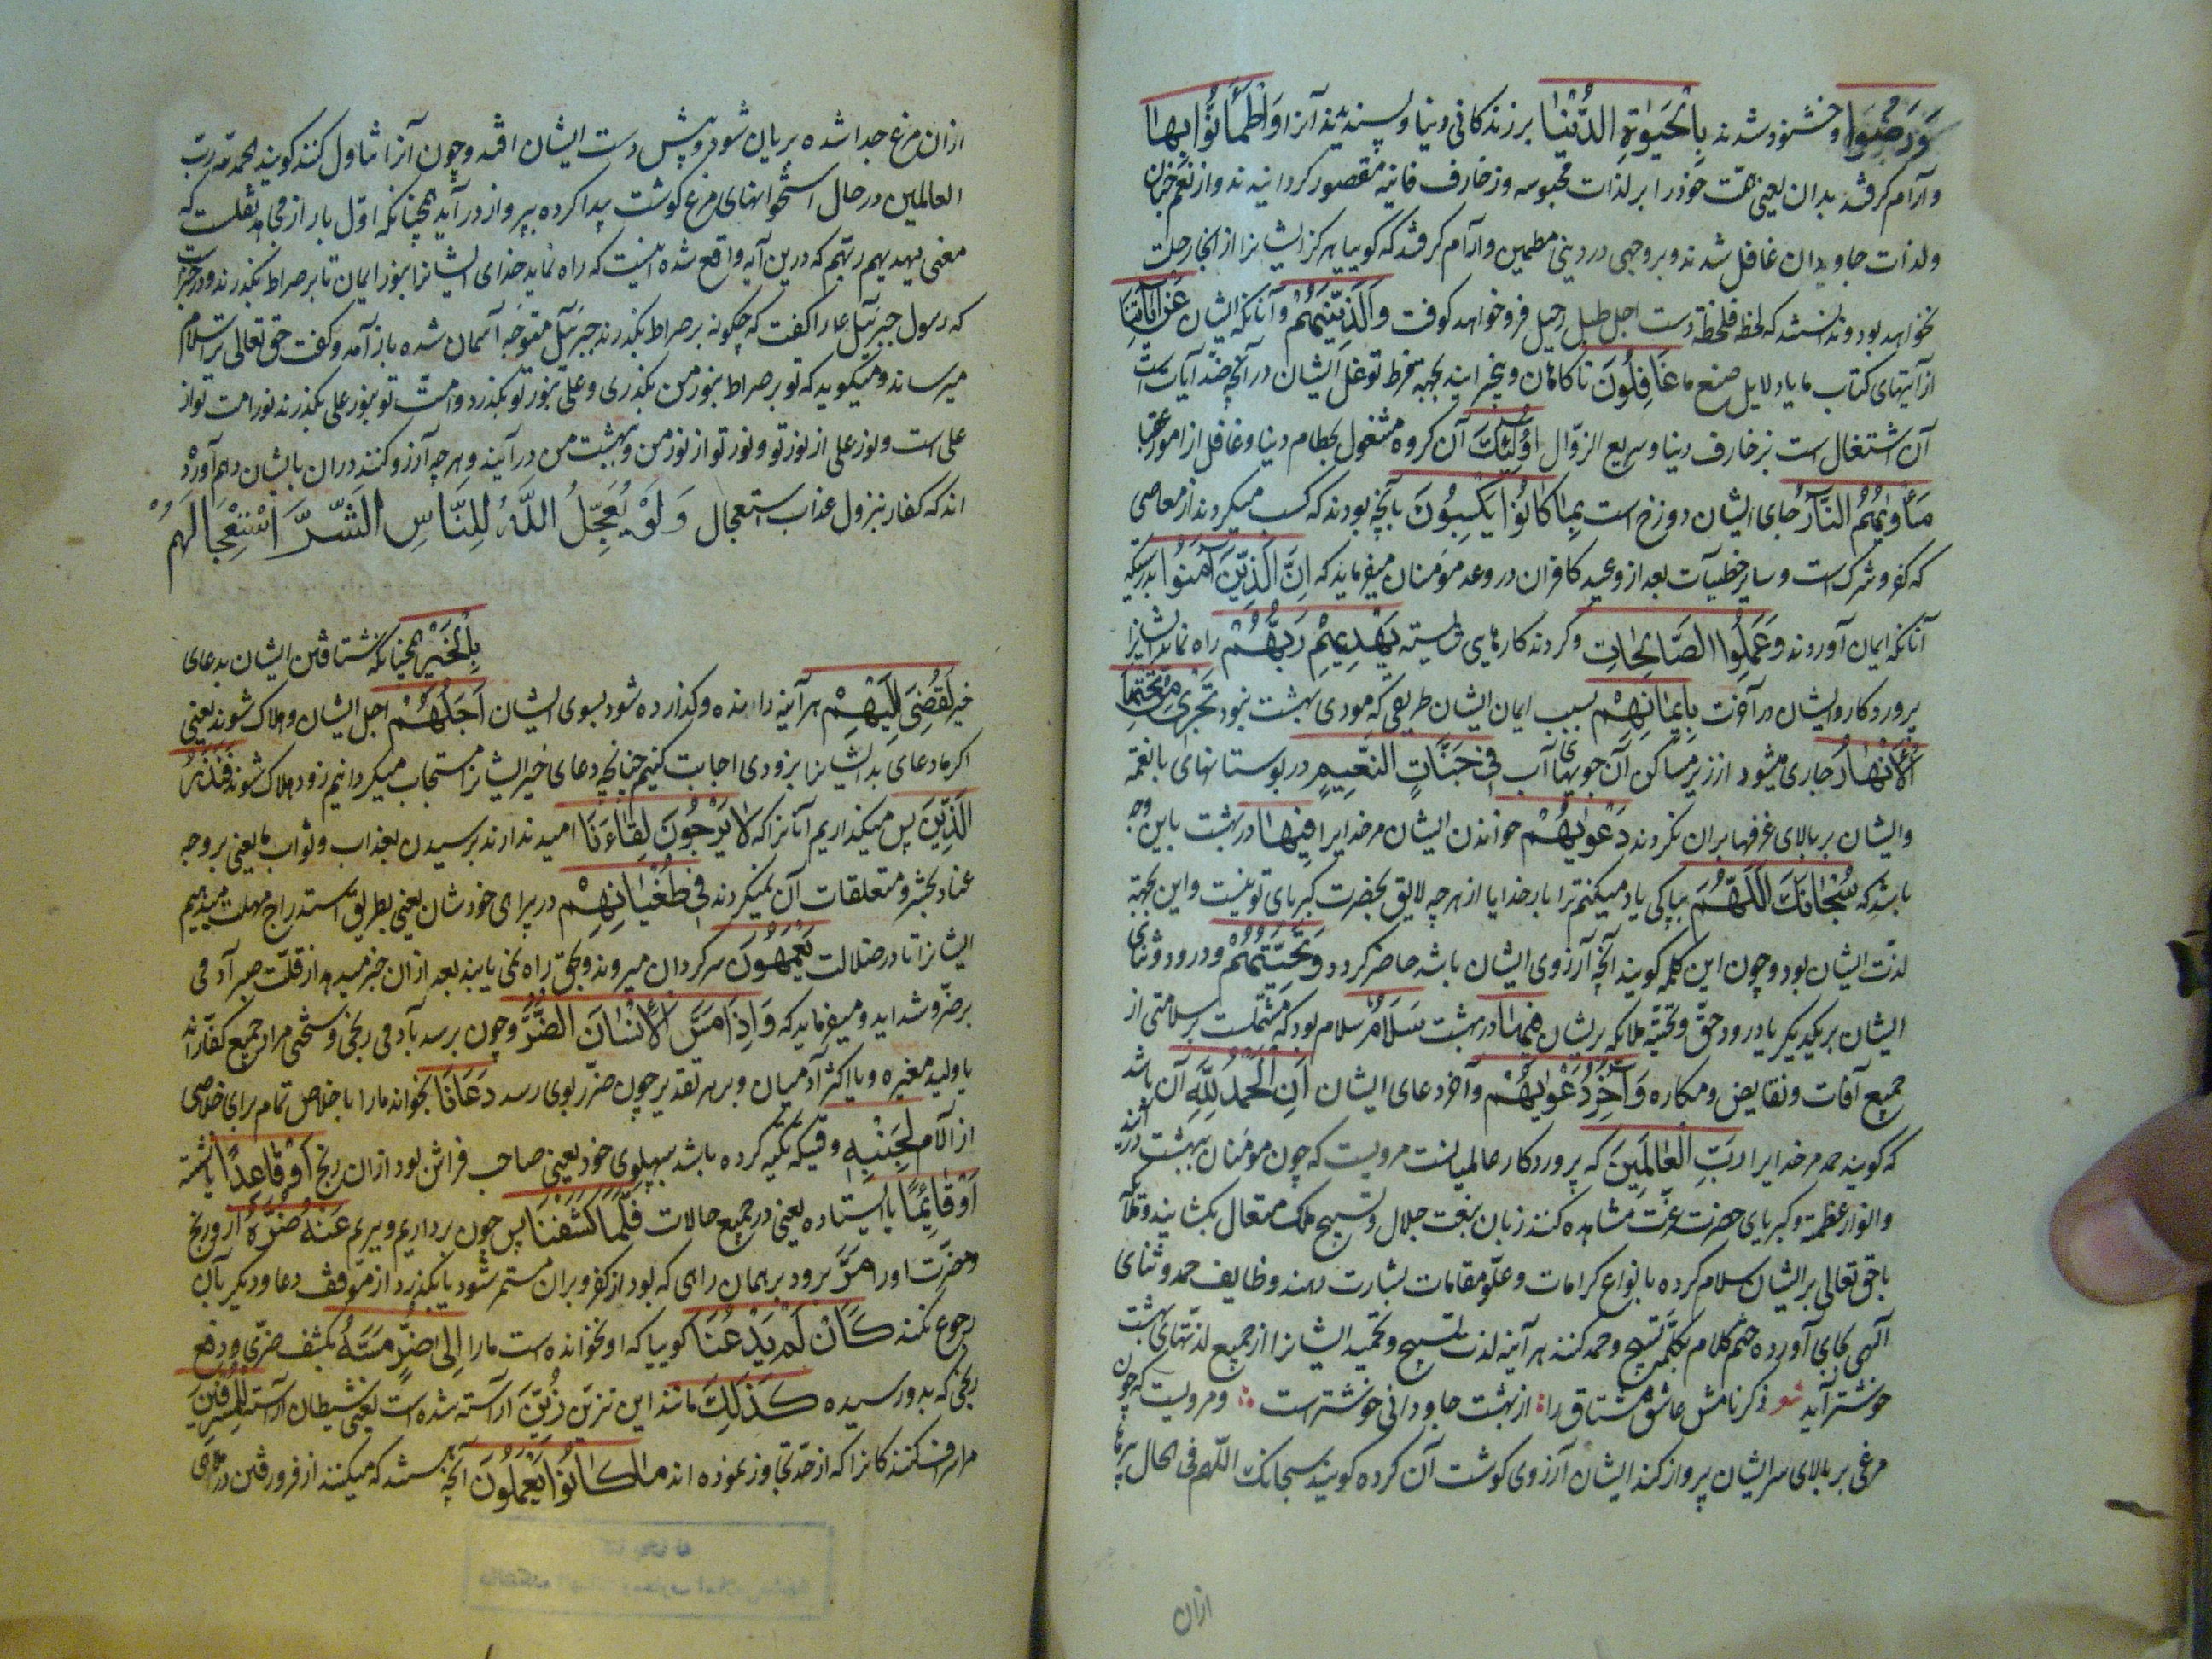 وَرَضُوا و خشنود شدند بِالْحَيٰوةِ الدُّنْيَا بر زندکانی دنیا و پسندیدند آنرا وَاطْمَاَنُّوا بِهَا
و آرام کرفتند بدان یعنی همّت خود را بر لذات محبوسه و زخارف فانیه مقصور کردانیدند و از نعم
و لذات جاویدان غافل شدند و بر وجهی در دنیی مطمین و آرام کرفتند که کوییا هرکز ایشانرا از انجا رحلت
نخواهد بود و ندانستند که لحظه فلحظه دست اجل طبل رحیل فرو خواهد کوفت وَالَّذِينَ هُمْ و آنانکه ایشان عَنْ اٰيَاتِنَا
از آیتهای کتاب ما یا دلایل صنع ما غَافِلُونَ ناکاهان و بیخبرانند بجهه فرط توغل ایشان در آنچه ضد آیات است
آن اشتغال است بزخارف دنیا و سریع الزوال اُولٰئِكَ آن کروه مشغول بحطام دنیا و غافل از امور عقبا
مَأْوٰيهُمُ النَّارُ جای ایشان دوزخ است بِمَا كَانُوا يَكْسِبُونَ بآنچه بودند که کسب میکردند از معاصی
که کفر و شرک است و سایر خطییات بعد از وعید کافران در وعد مؤمنان میفرماید که اِنَّ الَّذِينَ اٰمَنُوا بدرستیکه
آنانکه ایمان آوردند وَعَمِلُوا الصَّالِحَاتِ و کردند کارهای شایسته يَهْدِيهِمْ رَبُّهُمْ راه نماید ایشانرا
پروردکار ایشان در آخرت بِاِيمَانِهِمْ بسبب ایمان ایشان طریقی که مودی بهشت بود تَجْرِي مِنْ تَحْتِهِمُ
الْاَنْهَارُ جاری میشود از زیر مساکن آن جویهای آب فِي جَنَّاتِ النَّعِيمِ در بوستانهای با نعمه
و ایشان بر بالای غرفها بران نکرند دَعْوٰيهُمْ خواندن ایشان مر خدایرا فِيهَا در بهشت باین وجه
باشد که سُبْحَانَكَ اللّٰهُمَّ بپاکی یاد میکنیم ترا بار خدایا از هر چه لایق بحضرت کبریای تو نیست و این بجهة
لذت ایشان بود و چون این کلمه کویند آنچه آرزوی ایشان باشد حاضر کردد وَتَحِيَّتُهُمْ و درود و ثنای
ایشان بر یکدیکر یا درود حق و تحیّة ملائکه بریشان فِيهَا در بهشت سَلَامٌ سلام بود که مشتملست بر سلامتی از
جمیع آفات و نقایص و مکاره وَاٰخِرُ دَعْوٰيهُمْ و آخر دعای ایشان اَنِ الْحَمْدُ لِلّٰهِ آن باشد
که کویند حمد مر خدایرا رَبِّ الْعَالَمِينَ که پروردکار عالمیانست مرویست که چون مؤمنان ببهشت درآیند
و انوار عظمة و کبریای حضرت عزّت مشاهده کنند زبان بنعت جلال و تسبیح ملک متعال بکشایند و ملائکه
یا حق تعالی بر ایشان سلام کرده بانواع کرامات و علوّ مقامات بشارت دهند وظایف حمد و ثنای
الهی بجای آورده ختم کلام بکلمه تسبیح و حمد کنند هر آینه لذت تسبیح و تحمید ایشانرا از جمیع لذتهای بهشت
خوشتر آید شعر ذکر نامش عاشق مشتاق را ؛ از بهشت جاودانی خوشتر است ؛ و مرویست که چون
مرغی بر بالای سر ایشان پرواز کند ایشان آرزوی کوشت آن کرده کویند سبحانک اللّهم فی الحال
ازان
ازان مرغ جدا شده بریان شود و پیش دست ایشان افتد و چون آنرا تناول کنند کویند الحمد لله رب
العالمین در حال استخوانهای مرغ کوشت پیدا کرده بپرواز درآید همچنانکه اوّل بار از مجاهد نقلست که
معنی یهدیهم ربّهم که درین آیه واقع شده اینست که راه نماید خدای ایشانرا بنور ایمان تا بر صراط بکذرند و در خبر است
که رسول جبرئیل ع را کفت که چکونه بر صراط بکذرند جبرئیل متوجه آسمان شده باز آمد و کفت حق تعالی ترا سلام
میرساند و میکوید که تو بر صراط بنور من بکذری و علی بنور تو بکذرد و امت تو بنور علی بکذرند نور امت تو از
علی است و نور علی از نور تو و نور تو از نور من و ببهشت من درآیند و هر چه آرزو کنند دران بایشان دهم آورده
اند که کفار بنزول عذاب استعجال وَلَوْ يُعَجِّلُ اللّٰهُ لِلنَّاسِ الشَّرَّ اسْتِعْجَالَهُمْ
بِالْخَيْرِ همچنانکه شتافتن ایشان بدعای
خیر لَقُضِيَ اِلَيْهِمْ هر آینه رانده و کذارده شود بسوی ایشان اَجَلُهُمْ اجل ایشان و هلاک شوند یعنی
اکر ما دعای بد ایشانرا بزودی اجابت کنیم چنانچه دعای خیر ایشانرا مستجاب میکردانیم زود هلاک شوند فَنَذَرُ
الَّذِينَ پس میکذاریم آنانرا که لَا يَرْجُونَ لِقَاءَنَا امید ندارند برسیدن بعذاب و ثواب ما یعنی بر وجه
عناد بحشر و متعلقات آن نمیکروند فِي طُغْيَانِهِمْ در بیراهی خودشان یعنی بطریق استدراج مهلت میدهیم
ایشانرا تا در ضلالت يَعْمَهُونَ سرکردان میروند و بحق راه نمی یابند بعد ازان خبر میدهد از قلّت صبر آدمی
بر ضرّ و شداید و میفرماید که وَاِذَا مَسَّ الْاِنْسَانَ الضُّرُّ و چون برسد بآدمی رنجی و سختی مراد جمیع کفّارند
یا ولید مغیره و یا اکثر آدمیان و بر هر تقدیر چون ضرر بوی رسد دَعَانَا بخواند ما را باخلاص تمام برای خلاصی
از آلام لِجَنْبِهِ وقتیکه تکیه کرده باشد بپهلوی خود یعنی صاحب فراش بود ازان رنج اَوْ قَاعِدًا یا نشسته
اَوْ قَائِمًا یا ایستاده یعنی در جمیع حالات فَلَمَّا كَشَفْنَا پس چون برداریم و ببریم عَنْهُ ضُرَّهُ ازو رنج
و مضرّت او را مَرَّ برود برهمان راهی که بود از کفر و بران مستمر شود یا بکذرد از موقف دعا و دیکر بآن
رجوع نکند كَاَنْ لَمْ يَدْعُنَا کوییا که او نخوانده است ما را اِلٰى ضُرٍّ مَسَّهُ بکشف ضرّی و دفع
رنجی که بدو رسیده كَذٰلِكَ مانند این تزیین زُيِّنَ آراسته شده است یعنی شیطان آراسته لِلْمُسْرِفِينَ
مر اسراف کنندکانرا که از حدّ تجاوز نموده اند مَا كَانُوا يَعْمَلُونَ آنچه هستند که میکنند از فرو رفتن در